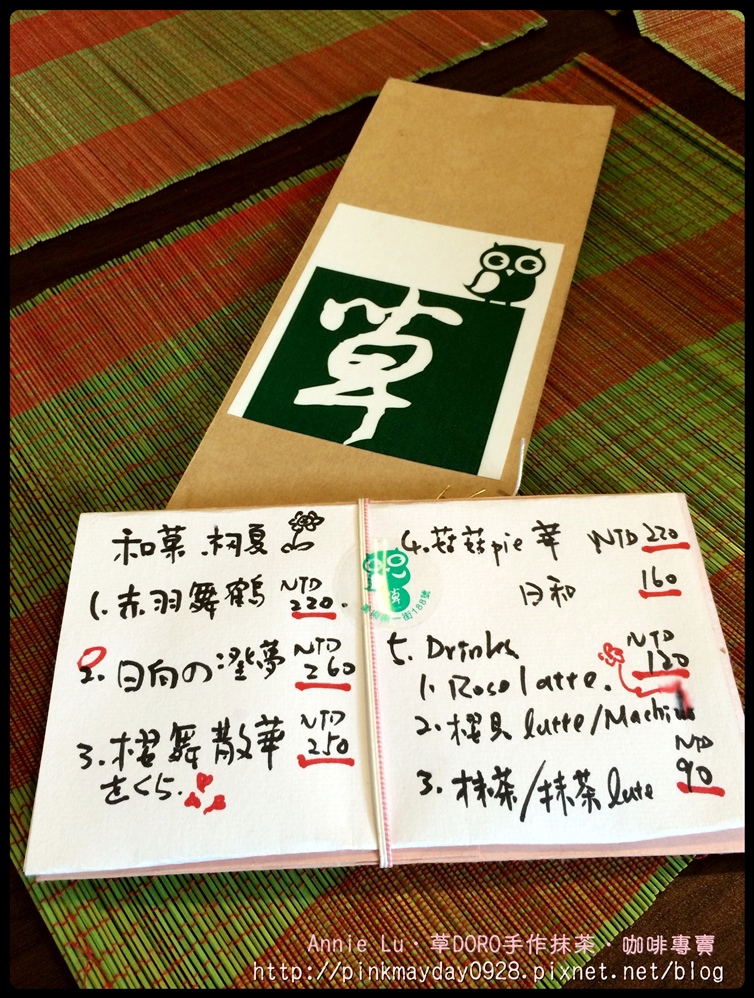 草
和菓.初夏
1.赤羽舞鶴 NTD 220.
2.日向の澄夢 NTD 260
3.櫻舞散華 NTD 250
さくら.
4.菇菇pie 華 NTD 220
日和 160
5. Drinks NTD 120
1. Roco latte.
2.櫻貝 latte/Machi
3.抹茶/抹茶 late NTD 90
街188號
Annie Lu·草DORO手作抹茶·咖啡專賣
http://pinkmayday0928.pixnet.net/blog